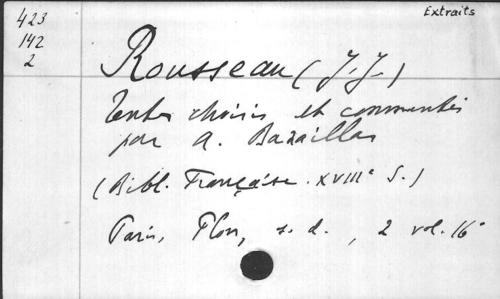 Extraits
423
142
2
Rousseau (J.J.)
Textes choisis et commentés
par A. Bazaillas
(Bibl. Française. XVIIIe S.)
Paris, Plon, s. d., 2 vol. 16°